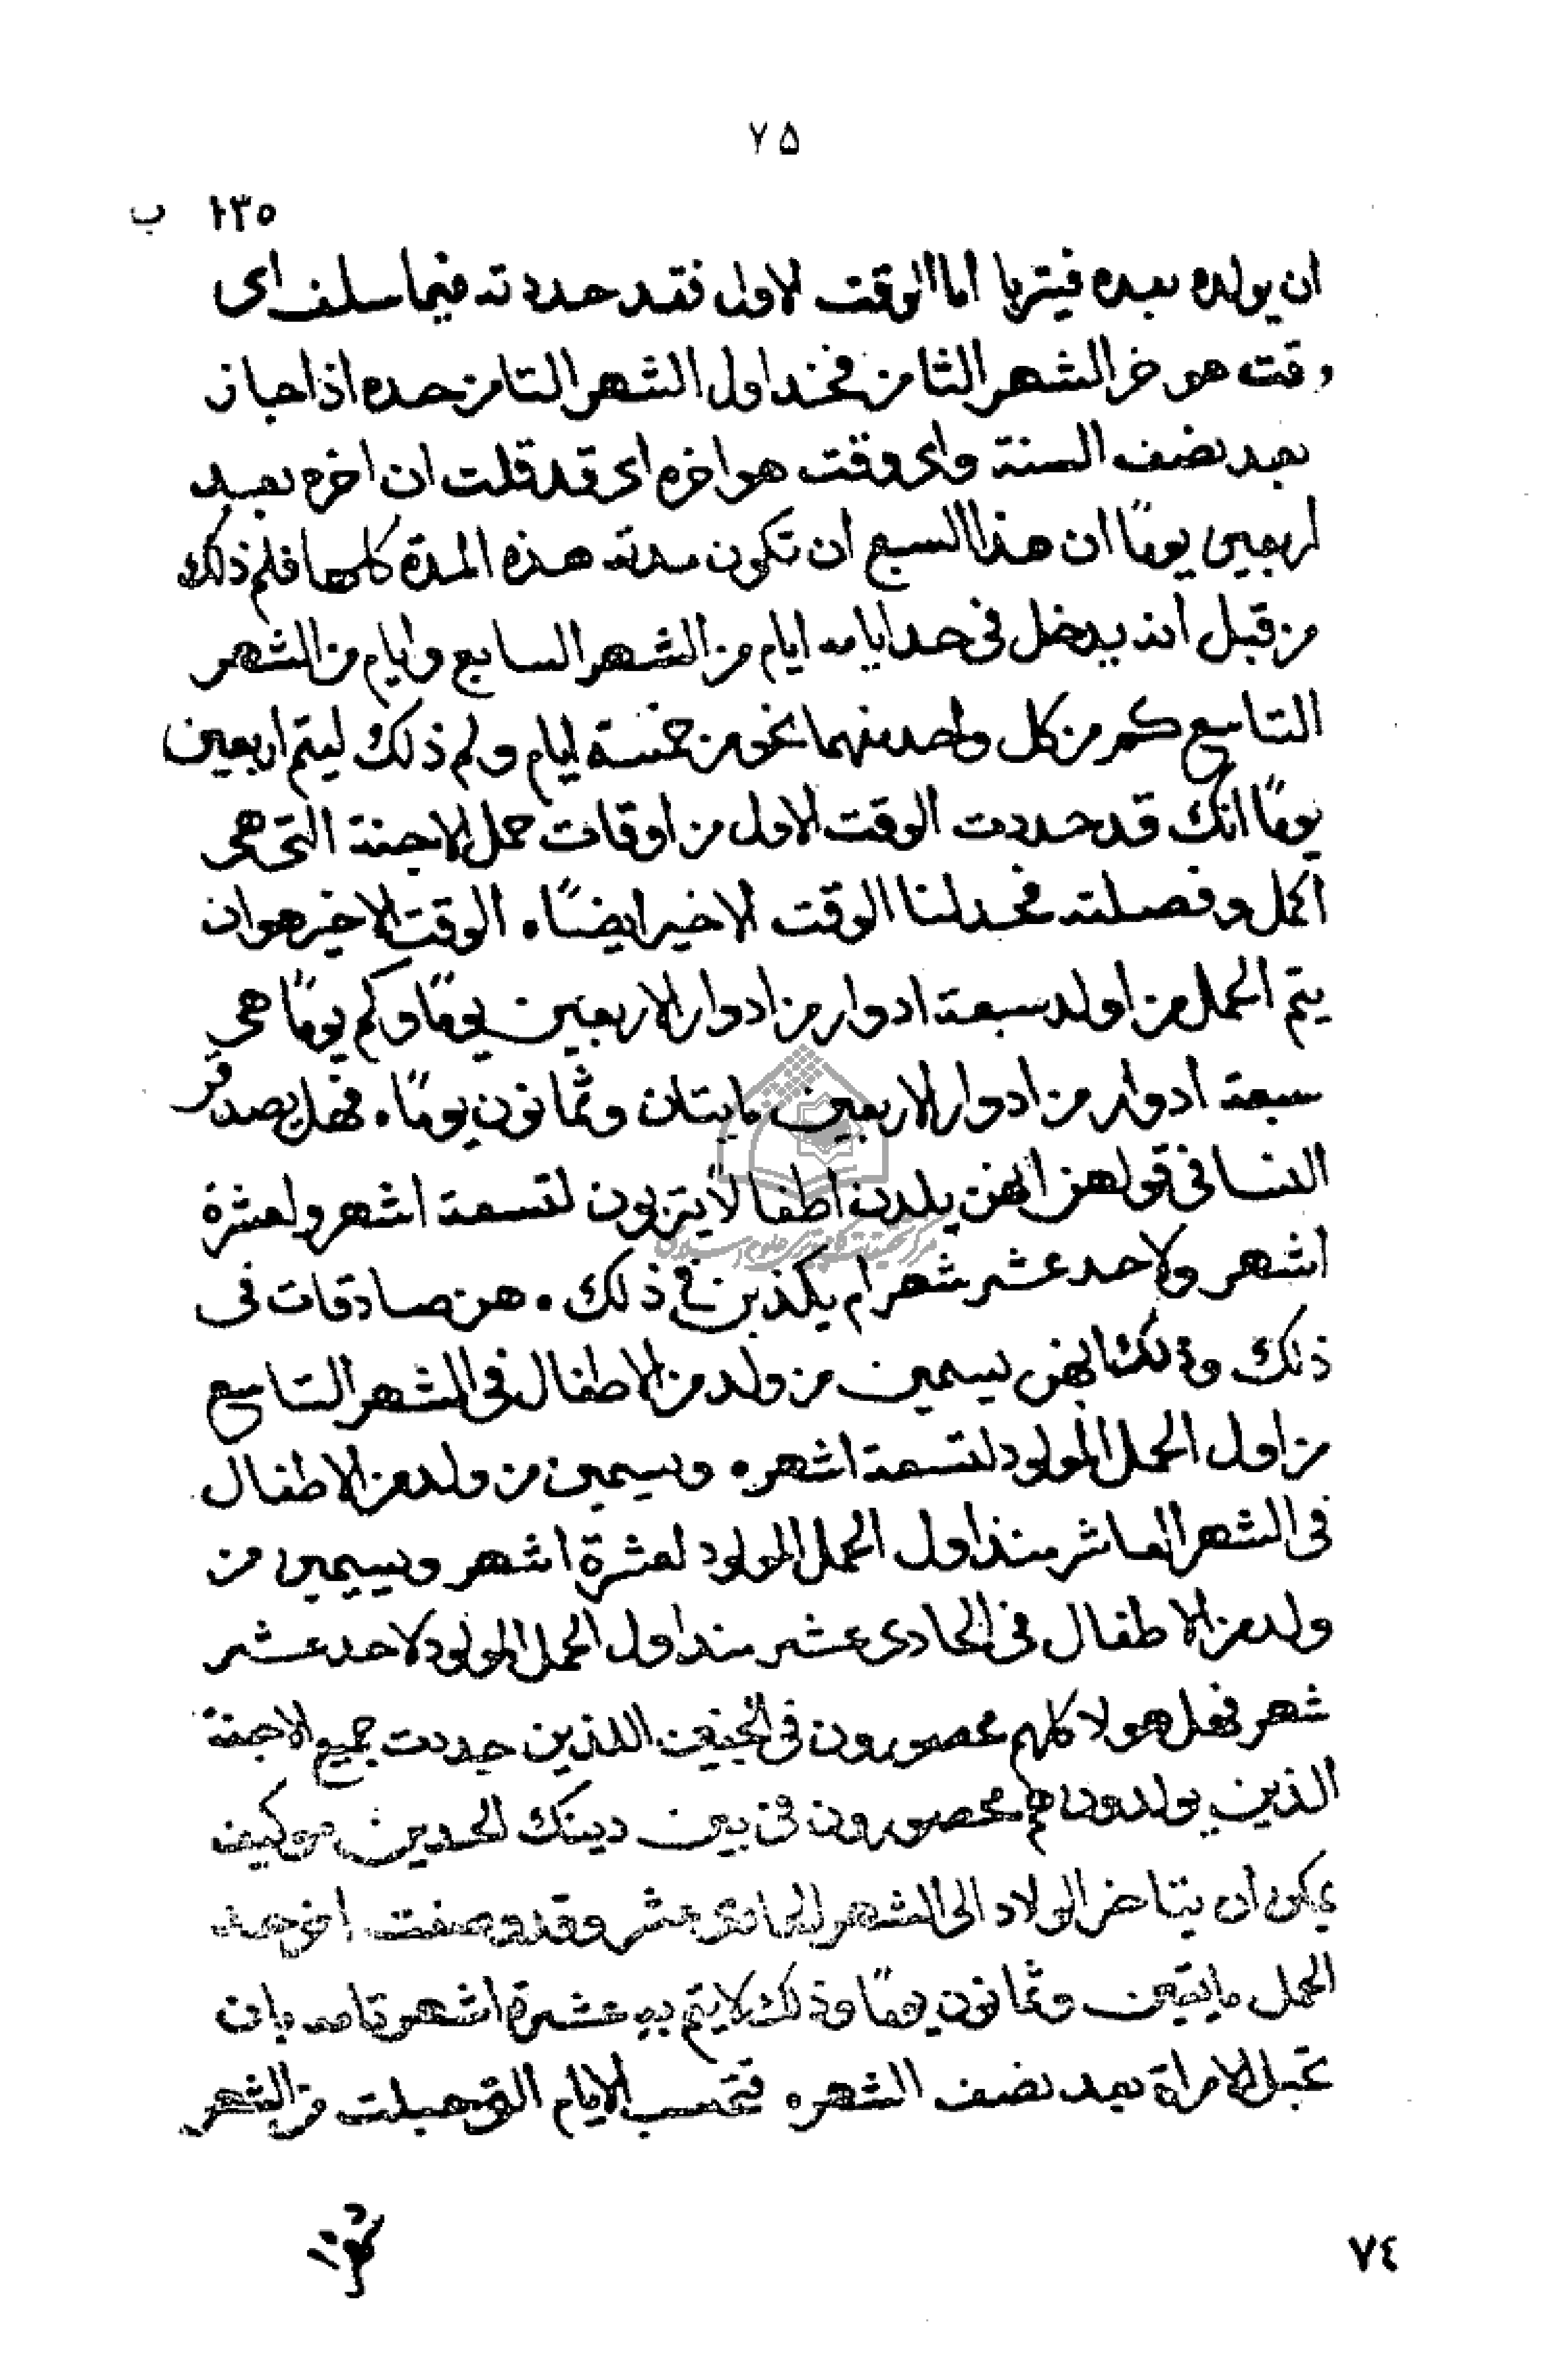 ٧۵
١٣٥ ب
ان يولده بعده فيتربا اما الوقت الاول فقد حددته فيما سلف اى
وقت هو خر الشهر الثامن فخذ اول الشهر الثامن حده اذا جاز
بعد نصف السنة واى وقت هو اخره اى قد قلت ان اخره بعد
اربعين يومًا ان هذا السبع ان تكون مدته هذه المدة كلها فلم ذلك
من قبل انه يدخل فى حد ايامه ايام من الشهر السابع وايام من الشهر
التاسع كم من كل واحد منهما نحو من خمسة ايام ولم ذلك ليتم اربعين
يومًا انك قد حددت الوقت الاول من اوقات حمل الاجنة التى هى
اكمل وفصلته فحد لنا الوقت الاخير ايضًا . الوقت الاخير هو ان
يتم الحمل من اوله سبعة ادوار من ادوار الاربعين يومًا وكم يومًا هى
سبعة ادوار من ادوار الاربعين مايتان وثمانون يومًا . فهل يصدقن
النسا فى قولهن انهن يلدن اطفالا يتربون لتسعة اشهر ولعشرة
اشهر ولاحد عشر شهرا م يكذبن فى ذلك . هن صادقات فى
ذلك وذلك انهن يسمين من ولد من الاطفال فى الشهر التاسع
من اول الحمل المولود لتسعة اشهر . ويسمين من ولد من الاطفال
فى الشهر العاشر منذ اول الحمل المولود لعشرة اشهر ويسمين من
ولد من الاطفال فى الحادى عشر منذ اول الحمل المولود لاحد عشر
شهر فهل هولا كلهم محصورون فى الذين حددت جميع الاجنة
الذين يولدون هم محصورون فى بين دينك الحدين وكيف
يمكن ان يتاخر الولاد الى الشهر الحادى عشر وقد وصفت حد
الحمل مايتين وثمانون يومًا وذلك لا يتم به عشرة اشهر تامه بان
تحبل الامراة بعد نصف الشهر . فتحسب الايام التى حبلت من الشهر
٧٤